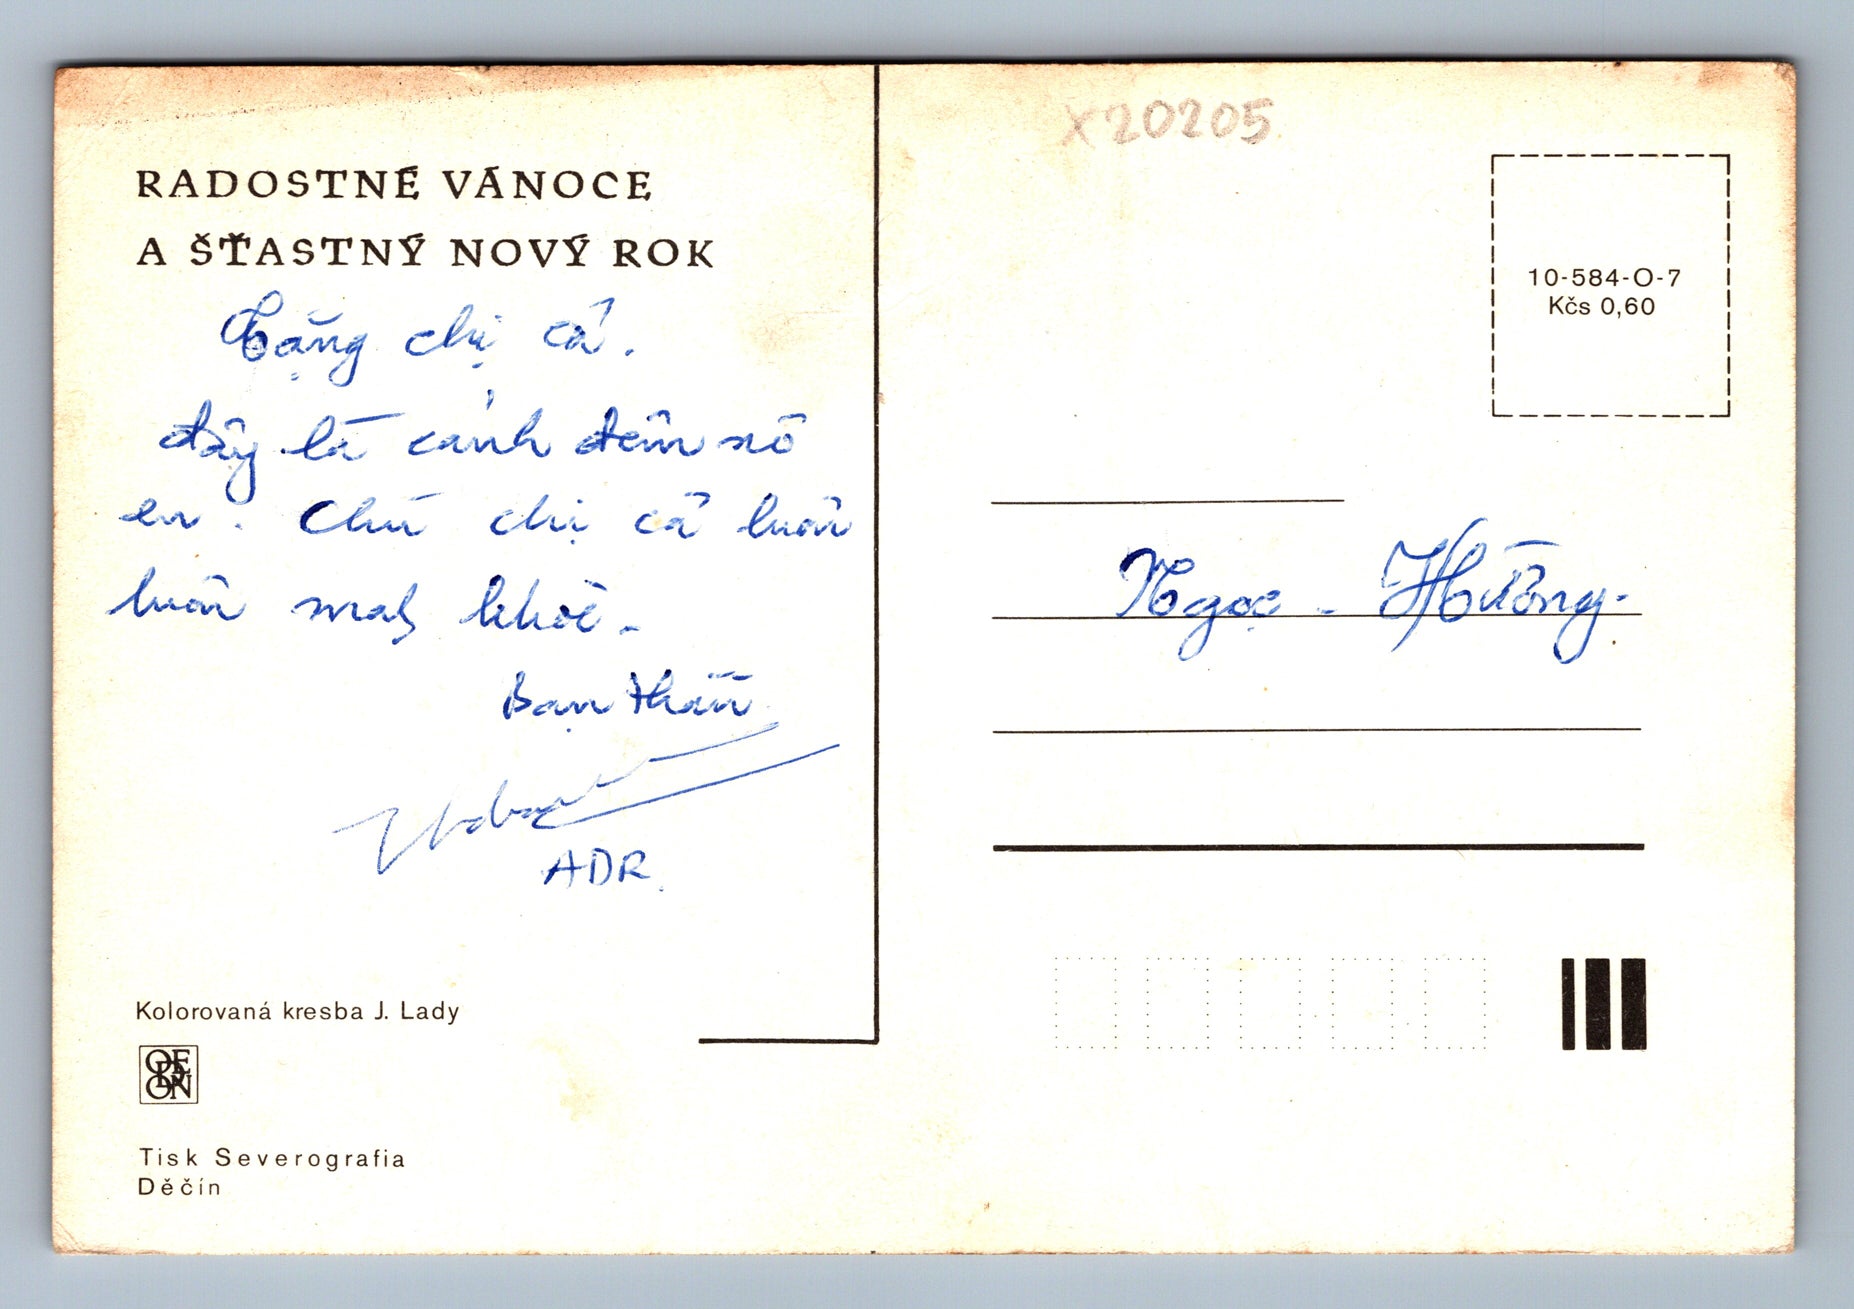 RADOSTNÉ VÁNOCE
A ŠŤASTNÝ NOVÝ ROK
Tặng chị cả.
đây là cảnh đêm nô
en. Chú chị cả luôn
luôn mạh khoẻ -
Bạn thân
ADR.
Kolorovaná kresba J. Lady
ODEON
Tisk Severografia
Děčín
X20205
10-584-O-7
Kčs 0,60
Ngọc - Hường.